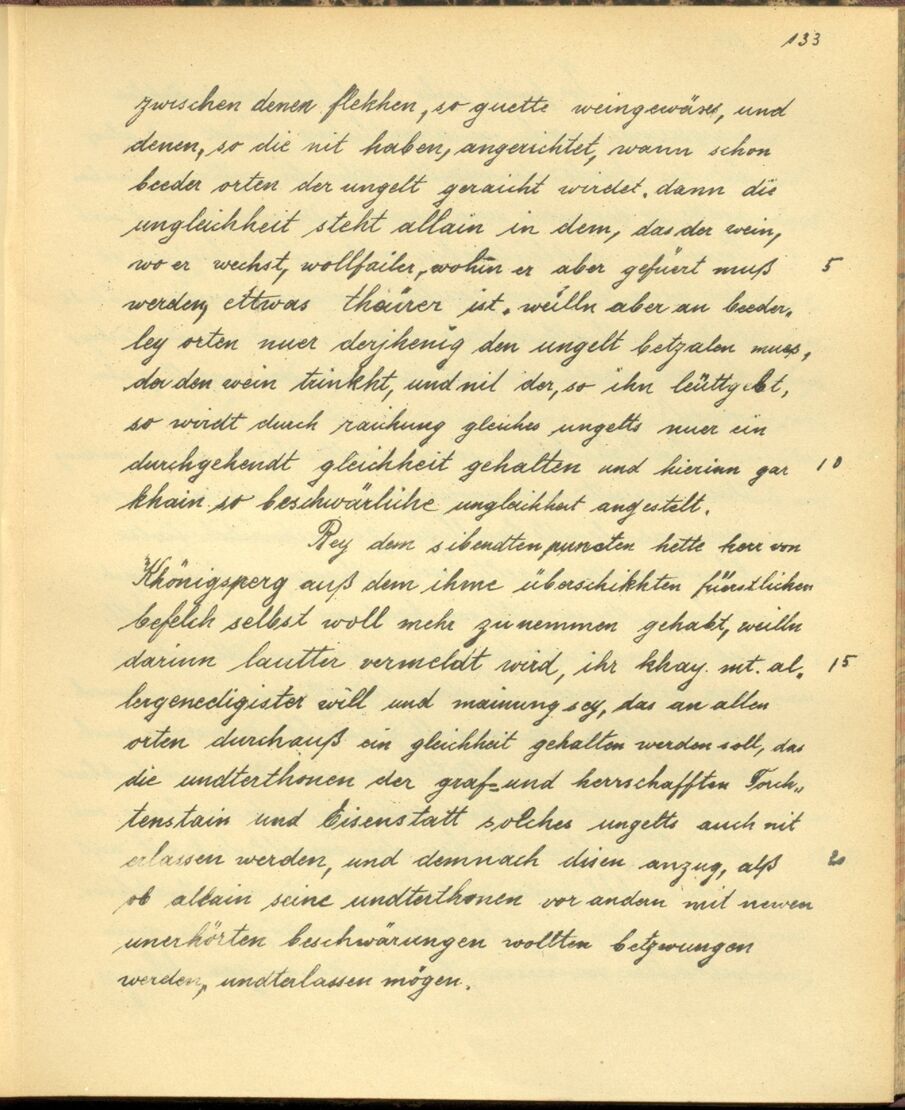 133
zwischen denen flekhen, so guette weingewäxs, und
denen, so die nit haben, angerichtet, wann schon
beeder orten der ungelt geraicht wirdet. dann die
ungleichheit steht allain in dem, das der wein,
wo er wechst, wollfailer, wohin er aber gefüert muß 5
werden, ettwas theürer ist. weilln aber an beeder„
ley orten nuer derjhenig den ungelt betzalen mues,
der den wein trinkht, und nit der, so ihn leüttgebt,
so wirdt durch raichung gleiches ungelts nuer ein
durchgehendt gleichheit gehalten und hierinn gar 10
khain so beschwärliche ungleichheit angestelt.
Bey dem sibendten puncten hette herr von
Khönigsperg auß dem ihme überschikhten fürstlichen
befelch selbst woll mehr zunemmen gehabt, weilln
darinn lautter vermeldt wird, ihr khay. mt. al„ 15
lergenedigister will und mainung sey, das an allen
orten durchauß ein gleichheit gehalten werden soll, das
die undterthonen der graf= und herrschafften Forch„
tenstain und Eisenstatt solches ungelts auch nit
erlassen werden, und demnach disen anzug, alß 20
ob allain seine undterthonen vor andern mit newen
unerhörten beschwärungen wollten betzwungen
werden, undterlassen mögen.